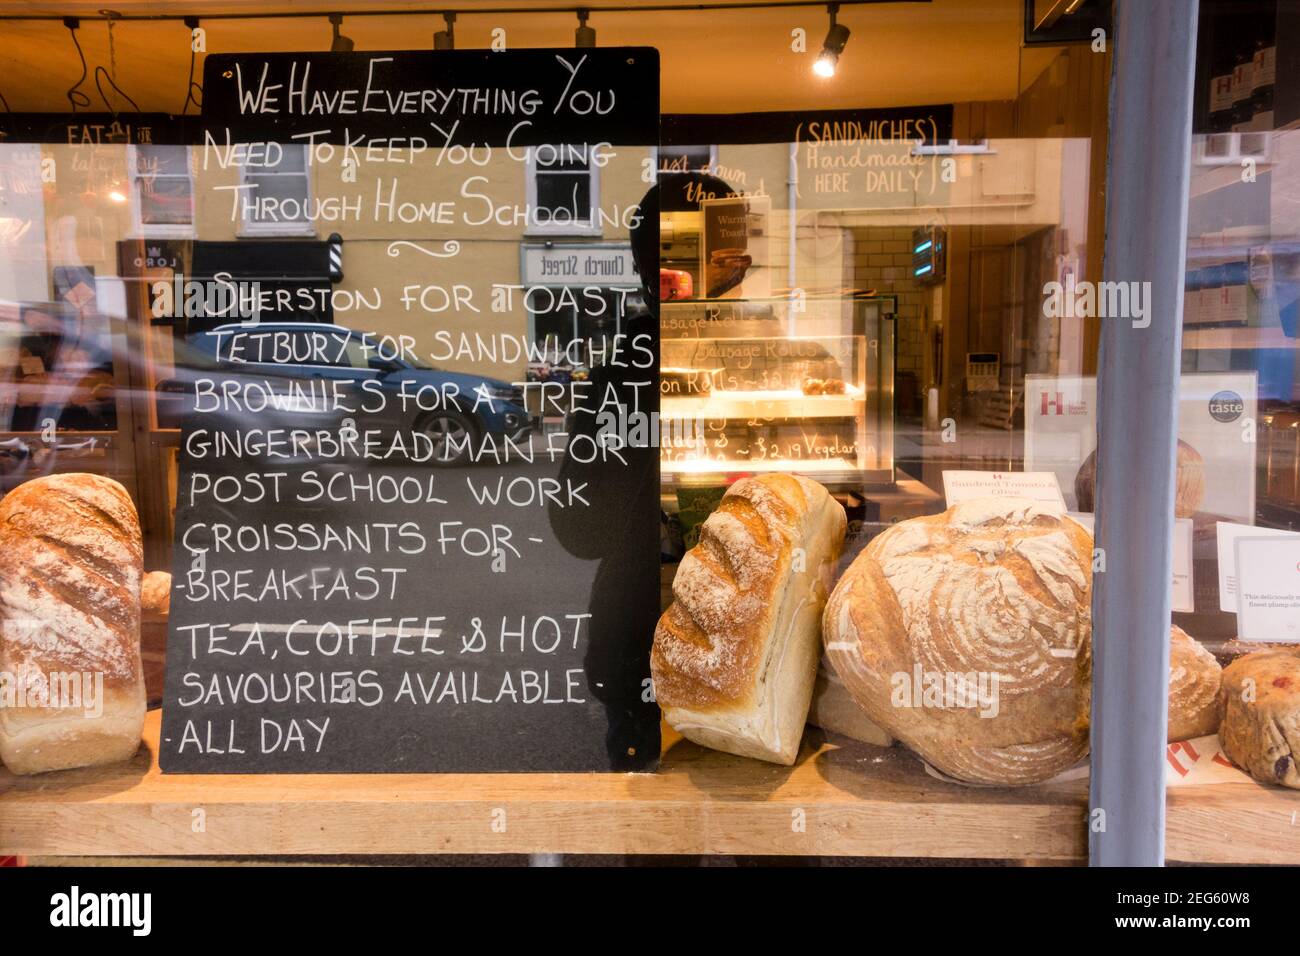 WE HAVE EVERYTHING YOU
NEED TO KEEP YOU GOING
THROUGH HOME SCHOOLING
SHERSTON FOR TOAST
TETBURY FOR SANDWICHES
BROWNIES FOR A TREAT
GINGERBREAD MAN FOR
POST SCHOOL WORK
CROISSANTS FOR -
-BREAKFAST
TEA, COFFEE & HOT
SAVOURIES AVAILABLE -
- ALL DAY
EAT IN OR
takeaway
LORD
Church Street
just down
the road
(SANDWICHES)
Handmade
HERE DAILY
Warm
Toast
Sausage Rolls
Sausage Rolls
on Rolls ~ £2.19
~ £2.19 Vegetarian
H
taste
H
Sundried Tomato &
Olive
This deliciously
finest plump
alamy
Image ID: 2EG60W8
www.alamy.com